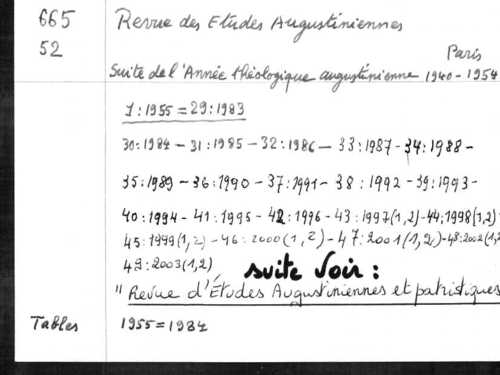 665 Revue des Etudes Augustiniennes
52 Paris
Suite de l'Année théologique augustinienne 1940-1954
1:1955 = 29:1983
30:1984 - 31:1985 - 32:1986 - 33:1987 - 34:1988 -
35:1989 - 36:1990 - 37:1991 - 38:1992 - 39:1993 -
40:1994 - 41:1995 - 42:1996 - 43:1997(1,2) - 44:1998(1,2)
45:1999(1,2) - 46:2000(1,2) - 47:2001(1,2) - 48:2002(1,2
49:2003(1,2) suite voir :
" Revue d'Études Augustiniennes et patristiques
Tables 1955=1984